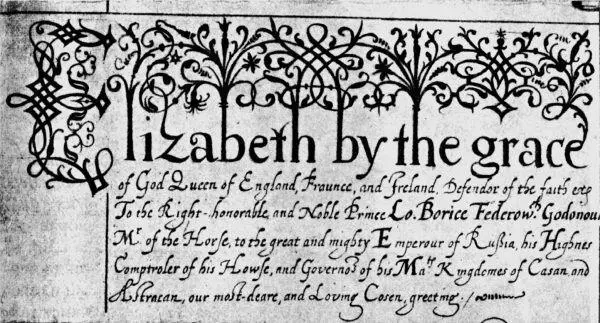 Elizabeth by the grace
of God Queen of England, Fraunce, and Ireland, Defendor of the faith &c
To the Right-honorable, and Noble Prince Lo. Borice Federowch Godonou
Mr. of the Horse, to the great and mighty Emperour of Rußia, his Highnes
Comptroler of his Howse, and Governor of his Mats Kingdomes of Casan, and
Astracan, our most-deare, and Loving Cosen, greeting./